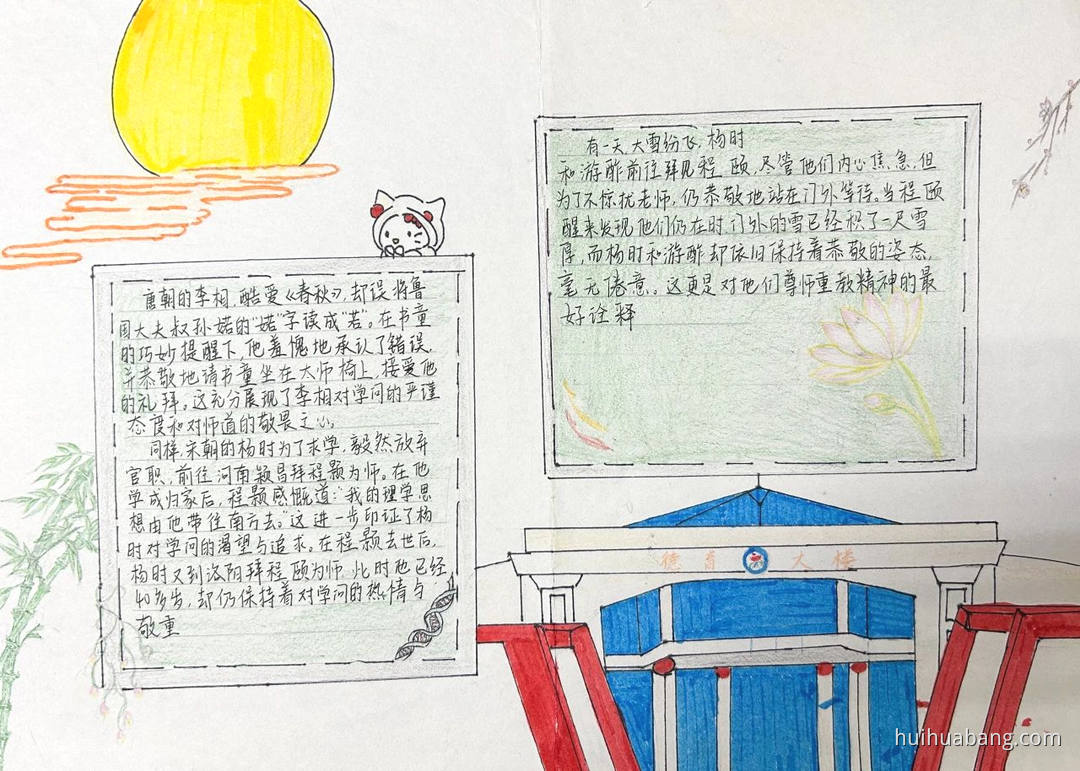 唐朝的李相，酷爱《春秋》，却误将鲁
国大夫叔孙婼的“婼”字读成“若”。在书童
的巧妙提醒下，他羞愧地承认了错误，
并恭敬地请书童坐在大师椅上，接爱他
的礼拜。这充分展现了李相对学问的严谨
态度和对师道的敬畏之心。
同样，宋朝的杨时为了求学，毅然放弃
官职，前往河南颍昌拜程颢为师。在他
学成归家后，程颢感慨道：“我的理学思
想由他带往南方去。”这进一步印证了杨
时对学问的渴望与追求。在程颢去世后，
杨时又到洛阳拜程颐为师，此时他已经
40多岁，却仍保持着对学问的热情与
敬重
有一天，大雪纷飞，杨时
和游酢前往拜见程颐，尽管他们内心焦急，但
为了不惊扰老师，仍恭敬地站在门外等待。当程颐
醒来发现他们仍在时，门外的雪已经积了一尺雪
厚，而杨时和游酢却依旧保持着恭敬的姿态，
毫无倦意。这更是对他们尊师重教精神的最
好诠释
德育大楼
huihuabang.com